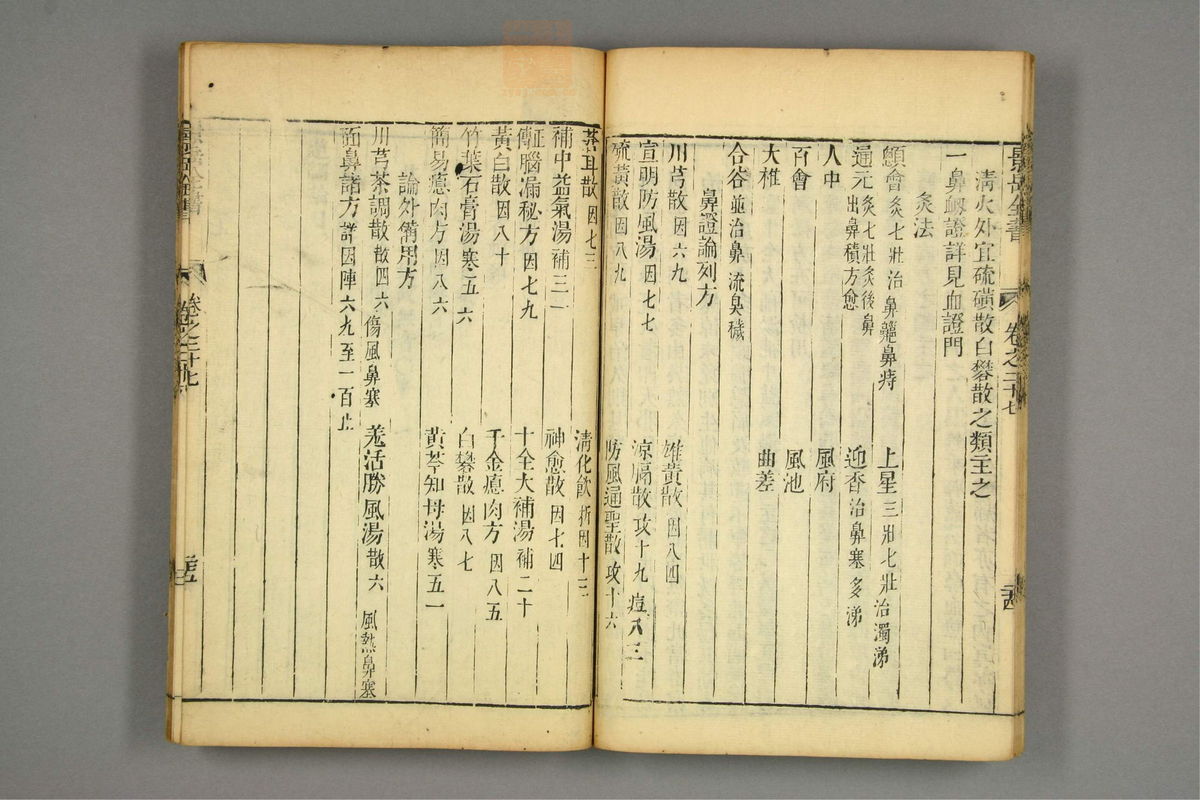 景岳全書 卷之二十七
清火外宜硫礦散白礬散之類主之
一鼻衂證詳見血證門
灸法
顖會 灸七壯 治鼻齇鼻痔
上星 三壯七壯治濁涕
通元 灸七壯灸後鼻出鼻積方愈
迎香 治鼻塞多涕
人中
風府
百會
風池
大椎
曲差
合谷 並治鼻流臭穢
鼻證論列方
川芎散 因六九
雄黄散 因八四
宣明防風湯 因七七
涼膈散 攻十九 痘八三
硫黄散 因八九
防風通聖散 攻十六
蒼耳散 因七三
清化飲 新因十三
補中益氣湯 補三一
神愈散 因七四
腦漏秘方 因七九
十全大補湯 補二十
黄白散 因八十
千金瘜肉方 因八五
竹葉石膏湯 寒五六
白礬散 因八七
簡易瘜肉方 因八六
黄芩知母湯 寒五一
論外備用方
川芎茶調散 散四六 傷風鼻塞
羌活勝風湯 散六 風熱鼻塞
面鼻諸方詳因陣六九至一百止
卷之二十七